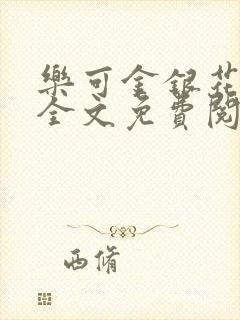 樂可金銀花
全文免費閱
西脩